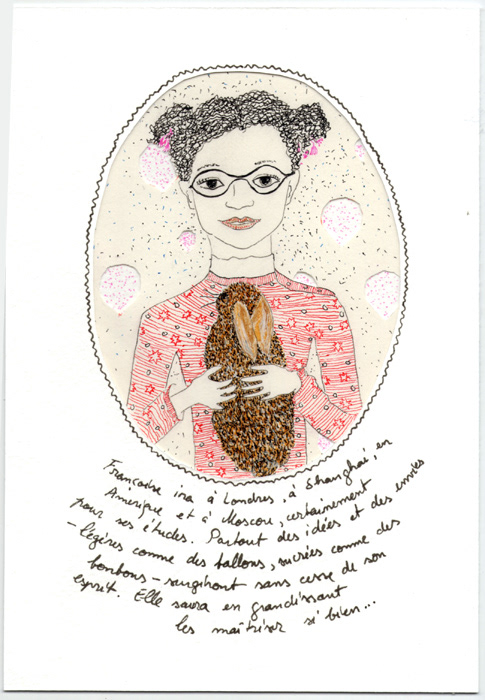 Françoise ira à Londres, à Shanghai, en
Amérique et à Moscou, certainement
pour ses études. Partout des idées et des envies
- légères comme des ballons, sucrées comme des
bonbons - surgiront sans cesse de son
esprit. Elle saura en grandissant
les maîtriser si bien...